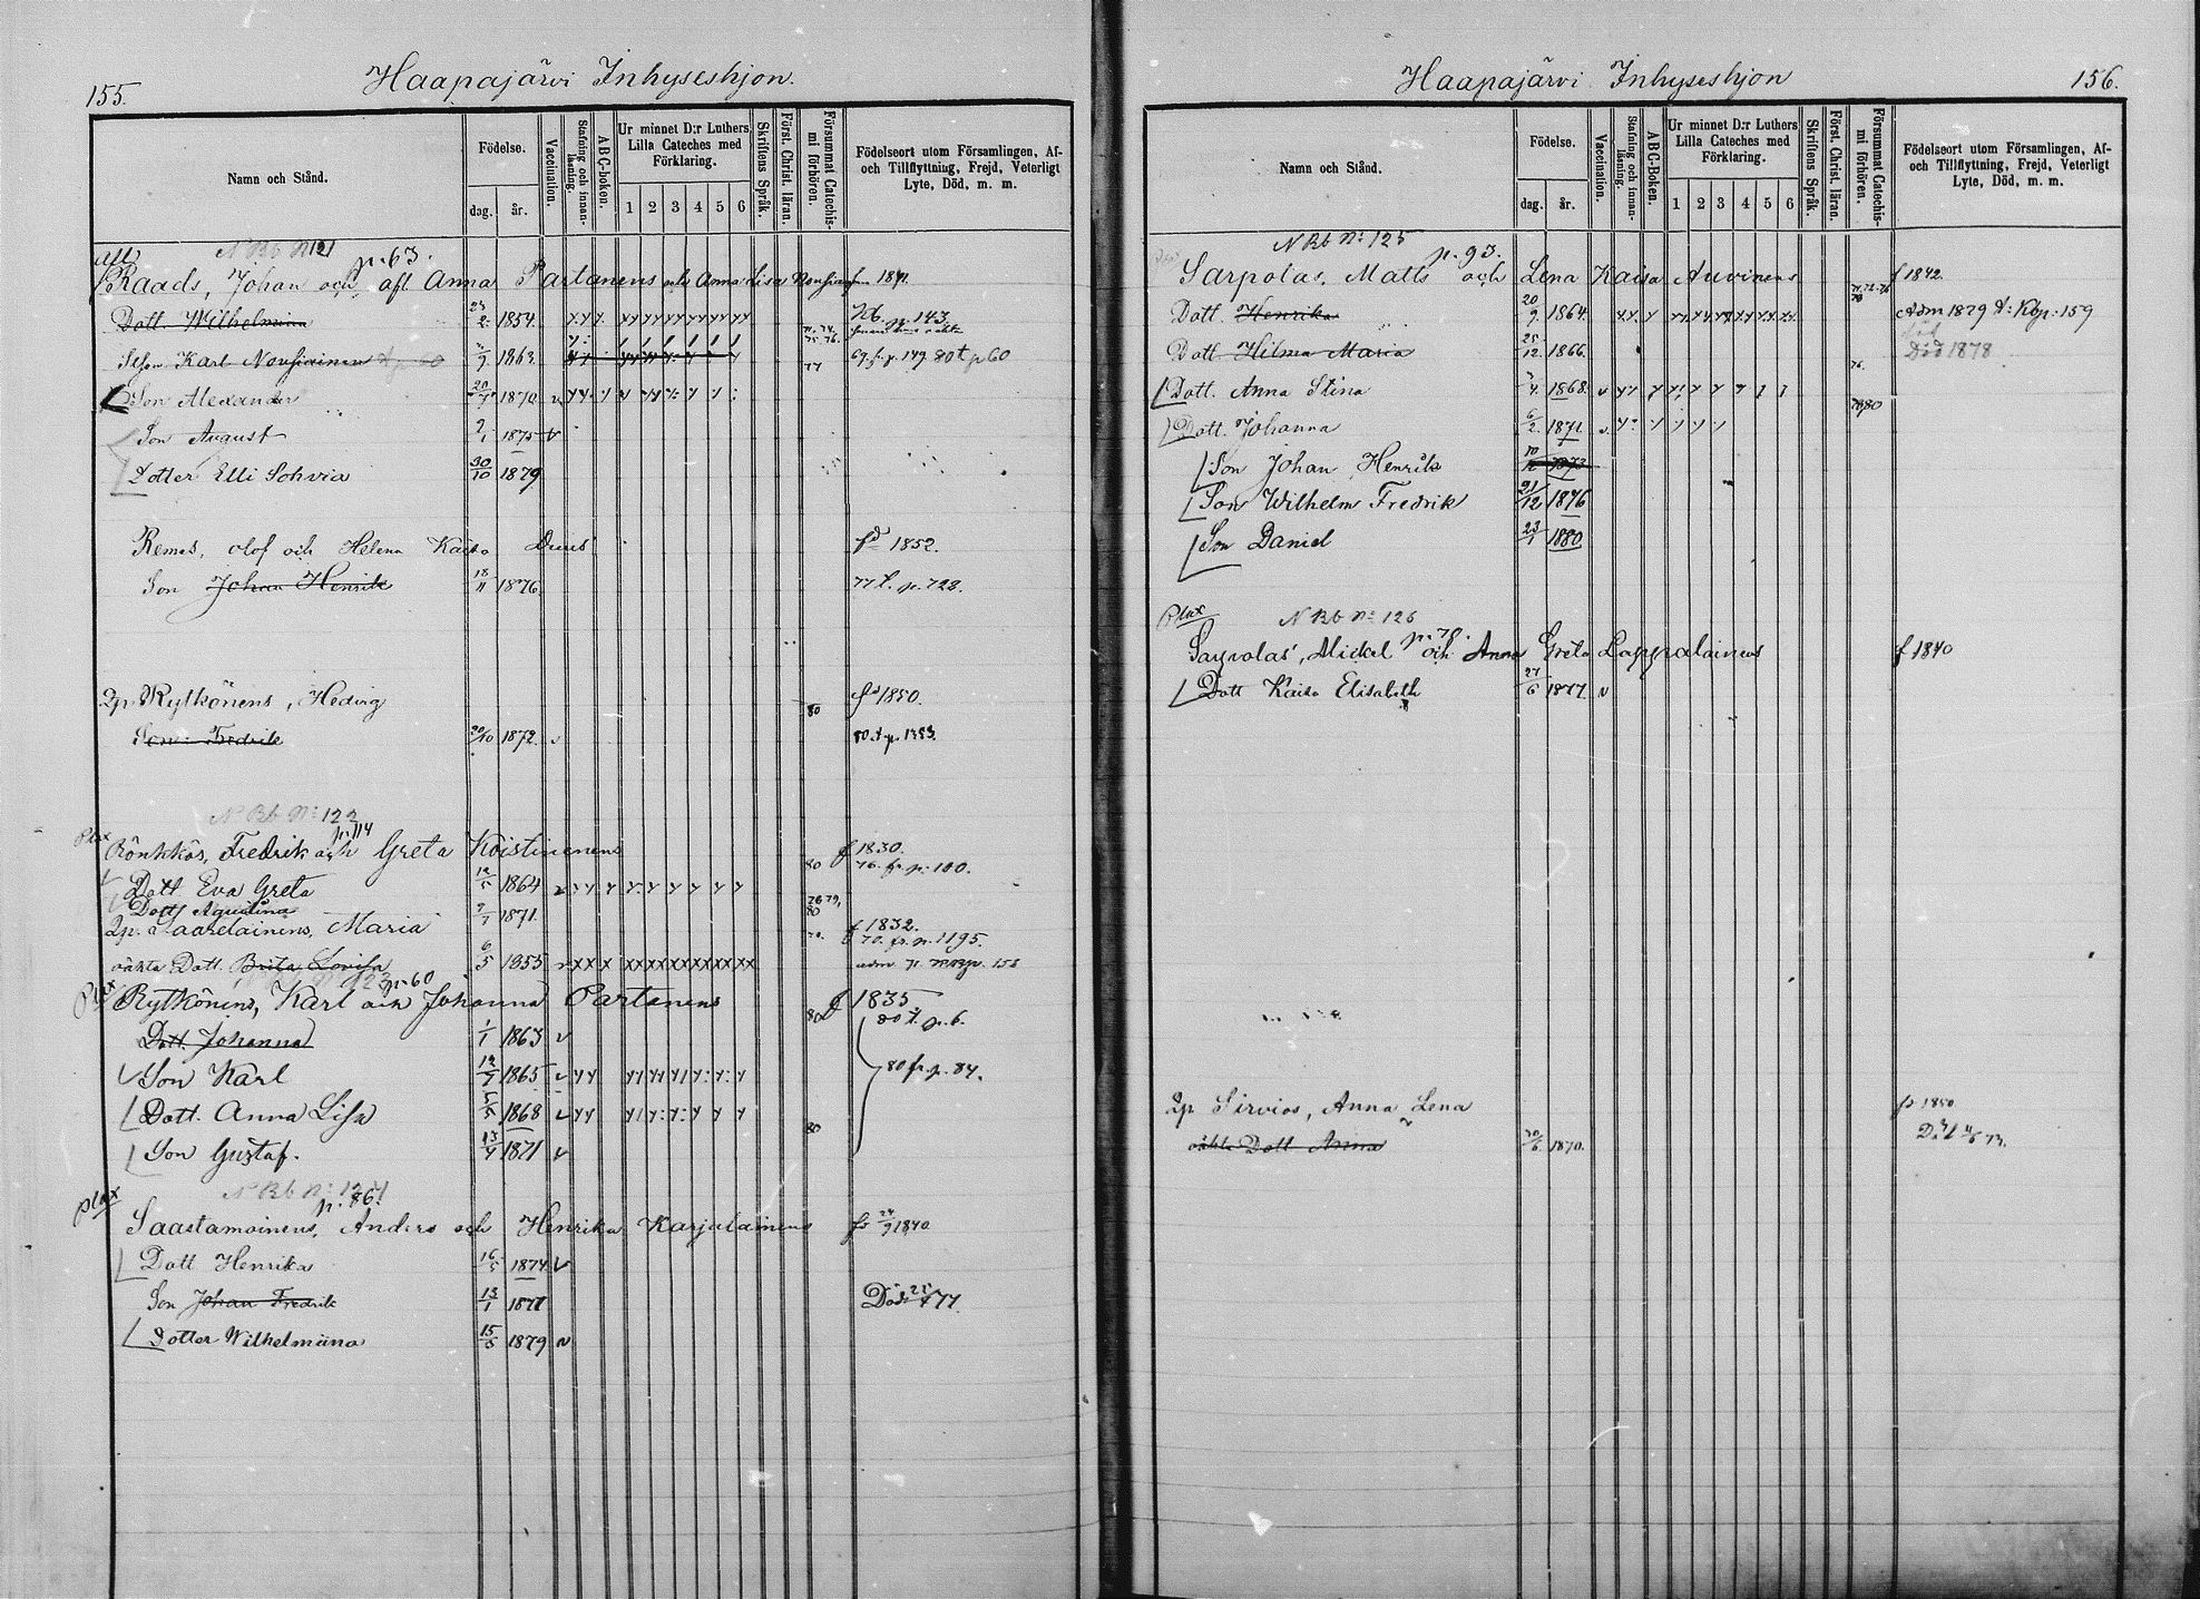 155.
Haapajärvi Inhyseshjon.
Namn och Stånd.
Födelse.
dag.
år.
Vaccination.
Stafning och innanläsning.
ABC-boken.
Ur minnet D:r Luthers Lilla Cateches med Förklaring.
1 2 3 4 5 6
Skriftens Språk.
Först. Christ. läran.
Försummat Catechismi förhören.
Födelseort utom Församlingen, Af- och Tillflyttning, Frejd, Veterligt Lyte, Död, m. m.
N Bb N 121
p. 63.
Raads, Johan och afl. Anna Partanens och Anna Lisa 1841.
Dott. Wilhelmina 23/2 1854. p. 143.
Karl Nousiainen 1863. 69. fr. p. 149 80 t p 60
77
Son Alexander 1870
Son August 2/1 1875
Dotter Elli Sohvia 30/10 1879
Remes, Olof och Helena Kaisa 1852.
Son Johan Henrik 18/11 1876. 77 t. p. 728.
Rytkönens, Hedvig 80 1850.
Son Fredrik 1872. 80. t p. 1383.
N Bb N: 122
p. 114
Rönkkös, Fredrik och Greta Koistinenens 80 f 1830.
76. fr. p. 100.
Dott. Eva Greta 1864
Dott. 1871. 80
Maria f 1832.
70. fr. p. 1195.
Dott. Brita Lovisa 6/5 1853
p. 60
Rytkönens, Karl och Johanna Partanens 80 f 1835
80 t. p. 6.
Dott. Johanna 1/1 1863
Son Karl 1865 80 fr. p. 84.
Dott. Anna Lisa 5/5 1868
80
Son Gustaf. 1871
N Bb N: 124
p. 86.
Saastamoinens, Anders och Henrika Karjalainens 1840.
Dott Henrika 16/5 1874
Son Johan Fredrik 13/1 1877 Död 77.
Dotter Wilhelmina 15/5 1879
Haapajärvi Inhyseshjon
156.
Namn och Stånd.
Födelse.
dag.
år.
Vaccination.
Stafning och innanläsning.
ABC-Boken.
Ur minnet D:r Luthers Lilla Cateches med Förklaring.
1 2 3 4 5 6
Skriftens Språk.
Först. Christ. läran.
Försummat Catechismi förhören.
Födelseort utom Församlingen, Af- och Tillflyttning, Frejd, Veterligt Lyte, Död, m. m.
N Bb N: 125
p. 93.
Sarpolas, Matts och Lena Kaisa Auvinens f 1842.
Dott. Henrika 20/9 1864. Adm 1879 t: Kb p. 159
Dott. Hilma Maria 25/12 1866. Död 1878
76.
Dott. Anna Stina 1868.
80
Dott. Johanna 6/2 1871
Son Johan Henrik 1873
Son Wilhelm Fredrik 21/12 1876
Son Daniel 23/1 1880
Plax
N Bb N: 126
p. 70.
Sarpolas, Mickel och Anna Greta Lappalainens f 1840
Dott Kaisa Elisabeth 27/6 1877.
Sirvios, Anna Lena 1850
oäkta Dott Anna 1870. Död 73.